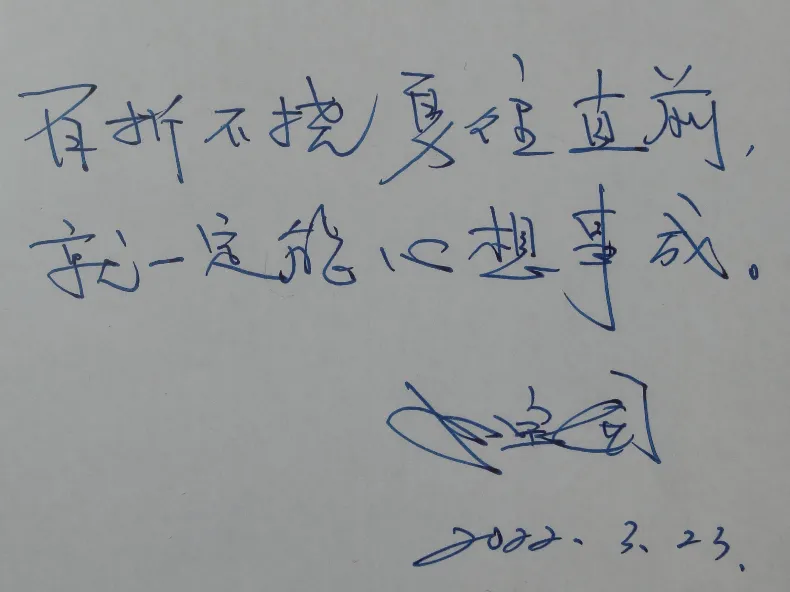 百折不挠勇往直前,
就一定能心想事成。
2022.3.23.